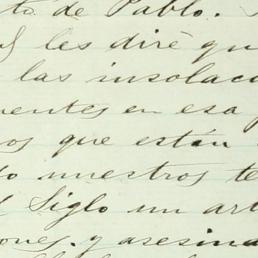 to de Pablo.
les diré qu
las insolac
entes en esa p
os que están
do nuestros te
Siglo un art
iones. y asesina